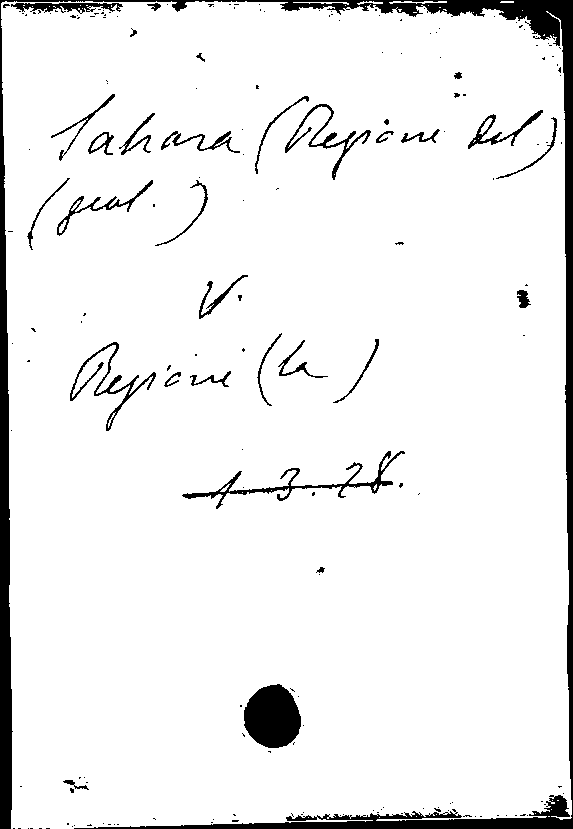 Sahara (Regione del)
(geol.)
V.
Regione (La)
1 3. 28.